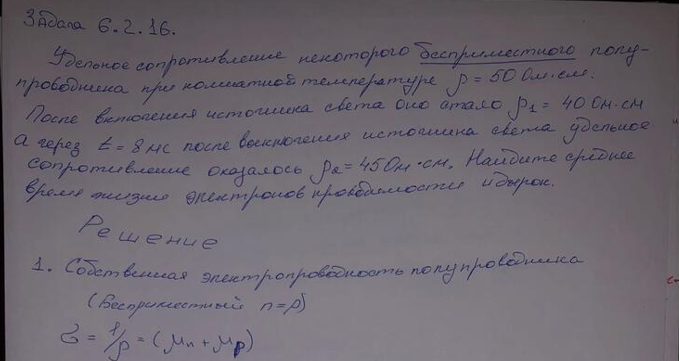 Задача 6.2.16.
Удельное сопротивление некоторого беспримесного полу-
проводника при комнатной температуре ρ = 50 Ом·см.
После включения источника света оно стало ρ₁ = 40 Ом·см
А через t = 8 мс после выключения источника света удельное
сопротивление оказалось ρ₂ = 45 Ом·см. Найдите среднее
время жизни электронов проводимости и дырок.
Решение
1. Собственная электропроводность полупроводника
(Беспримесный n = p)
σ = 1/ρ = (μn + μp)